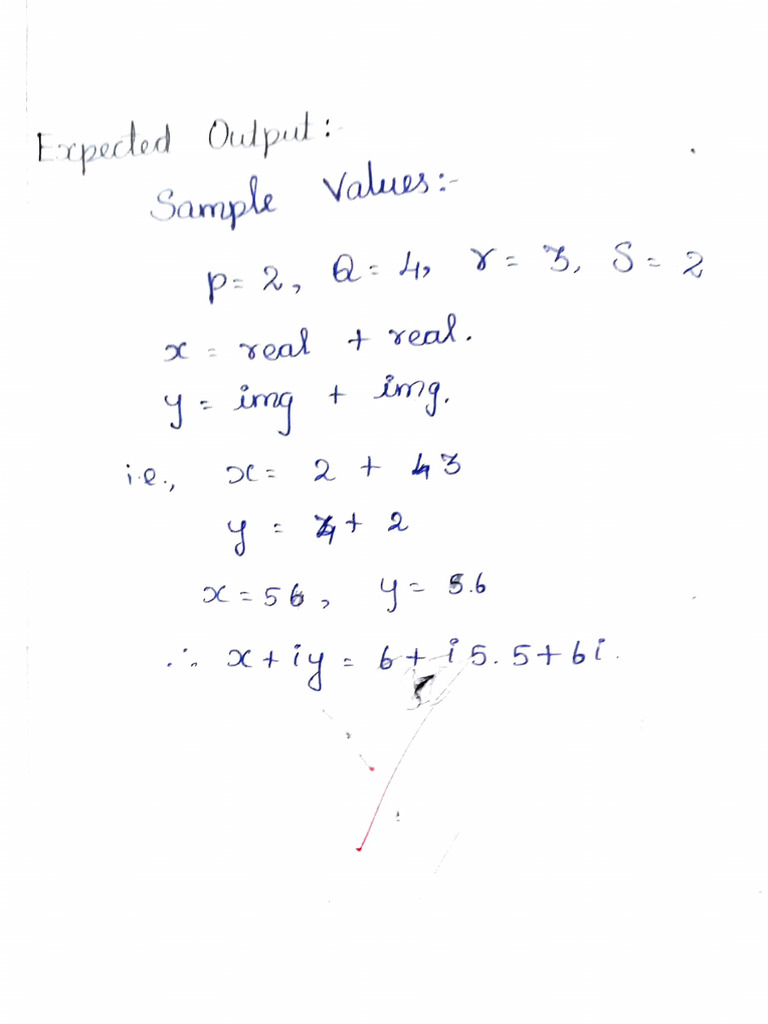 Expected Output:-
Sample Values:-
p=2, Q=4, r=3, S=2
x = real + real.
y = img + img.
i.e., x= 2 + 3
y = 4+ 2
x=5, y= 6
∴ x+iy = 5+6i.